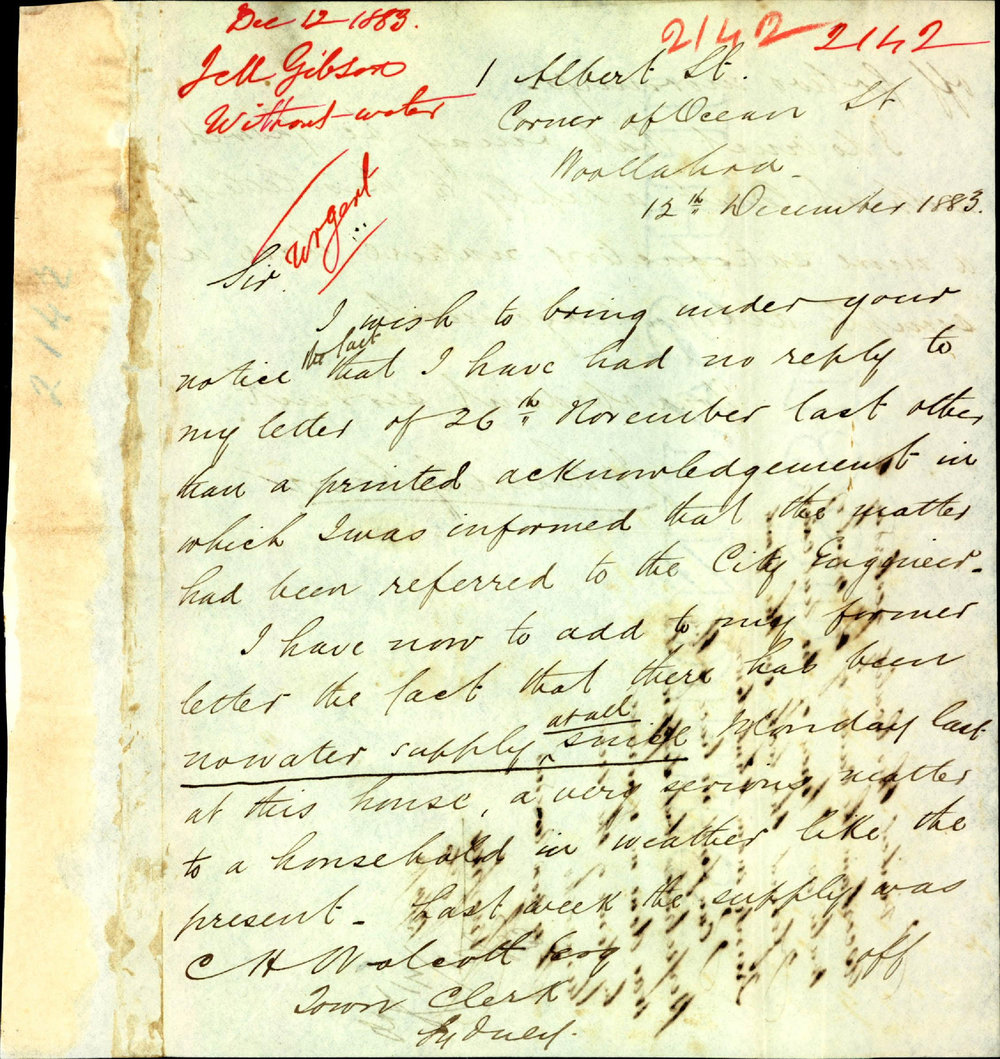 Dec 12 1883.
Gibson
Without water
2142 2142
1 Albert St.
Corner of Ocean St
Woollahra -
12th December 1883.
Urgent
Sir
I wish to bring under your
notice the fact that I have had no reply to
my letter of 26th November last other
than a printed acknowledgement in
which I was informed that the matter
had been referred to the City Engineer -
I have now to add to my former
letter the fact that there has been
no water supply at all since Monday last
at this house, a very serious matter
to a household in weather like the
present - Last week the supply was
off
C H Wolcott Esq
Town Clerk
Sydney.
2142